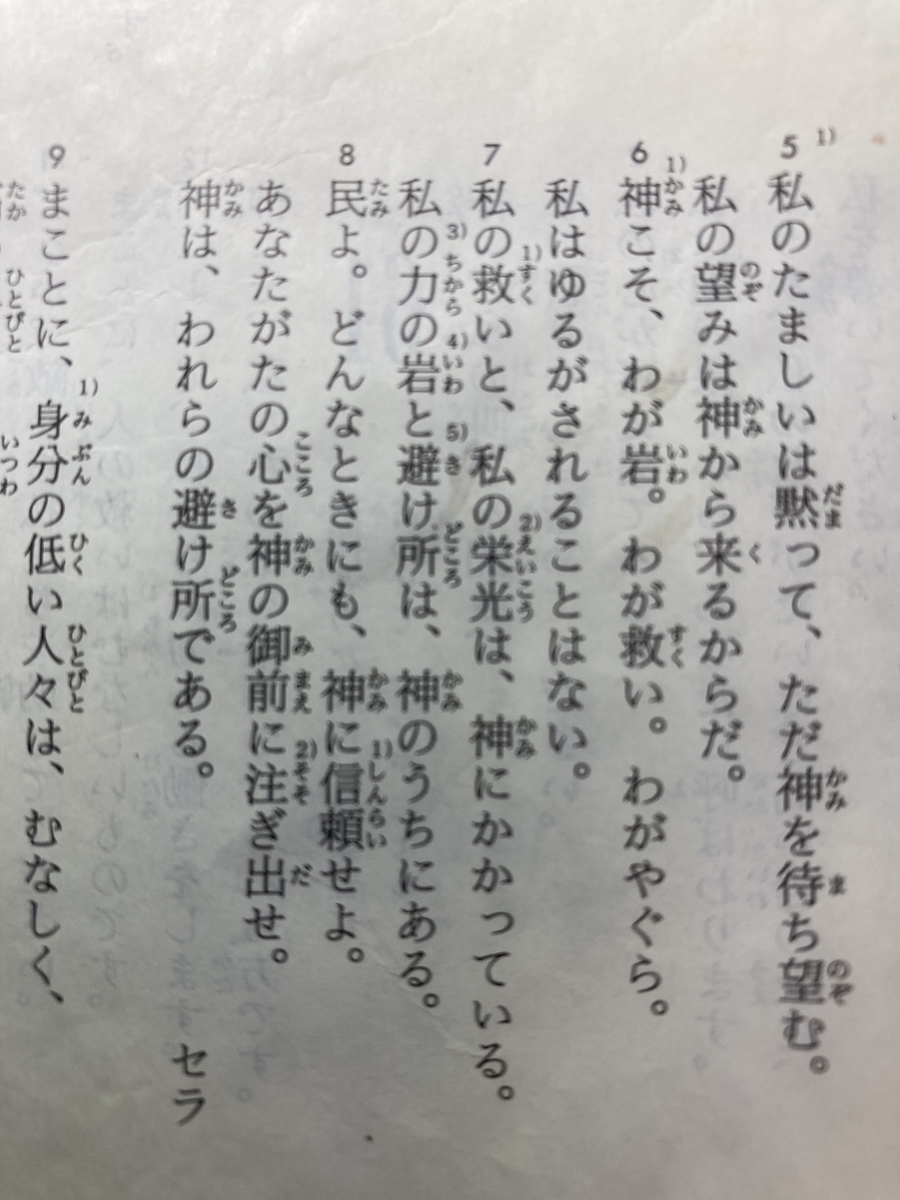 5 1)私のたましいは黙って、ただ神を待ち望む。
私の望みは神から来るからだ。
6 1)神こそ、わが岩。わが救い。わがやぐら。
私はゆるがされることはない。
7 私の1)救いと、私の2)栄光は、神にかかっている。
私の3)力の4)岩と5)避け所は、神のうちにある。
8 民よ。どんなときにも、神に1)信頼せよ。
あなたがたの心を神の御前に2)注ぎ出せ。
神は、われらの避け所である。 セラ
9 まことに、1)身分の低い人々は、むなしく、